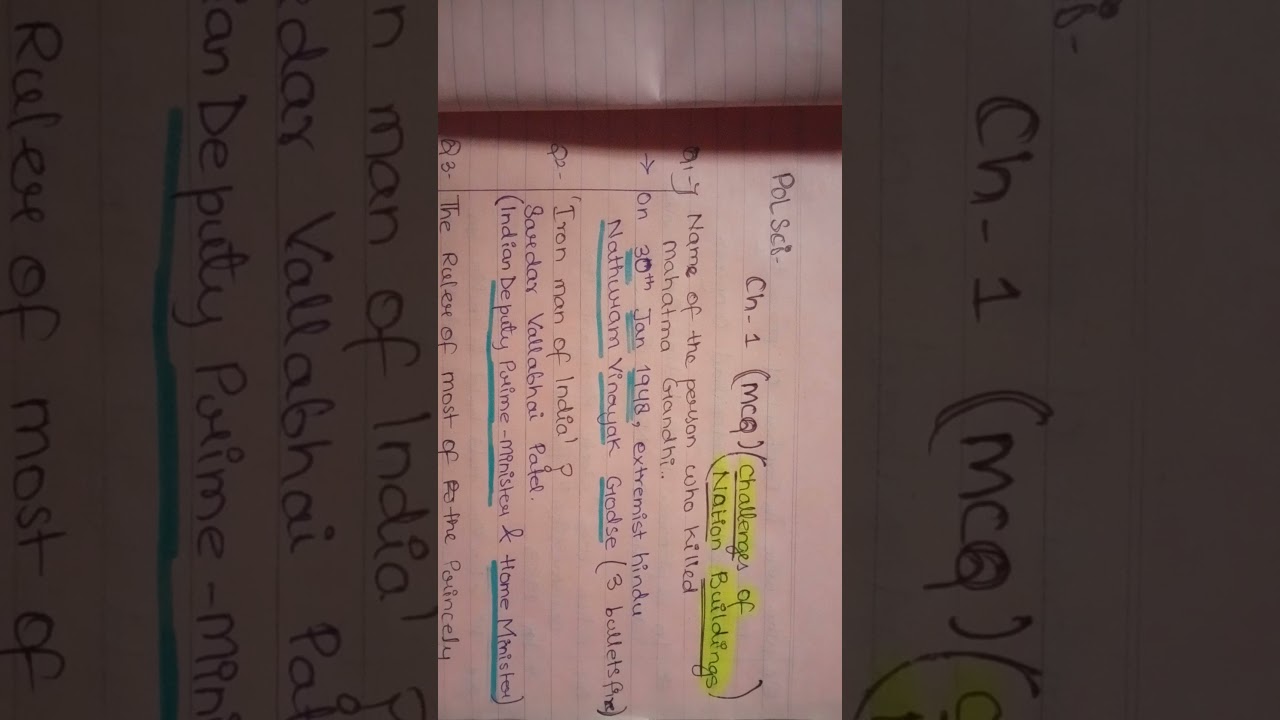 Pol Sci-
Ch-1 (MCQ) (Challenges of
Nation Buildings)
Q1-) Name of the person who killed
mahatma Gandhi..
→ On 30th Jan 1948, extremist hindu
Nathuram Vinayak Godse (3 bullets
Q2- 'Iron man of India' ?
Sardar Vallabhai Patel.
(Indian Deputy Prime-Minister & Home Minister)
Q3- The Ruler of most of the Princely